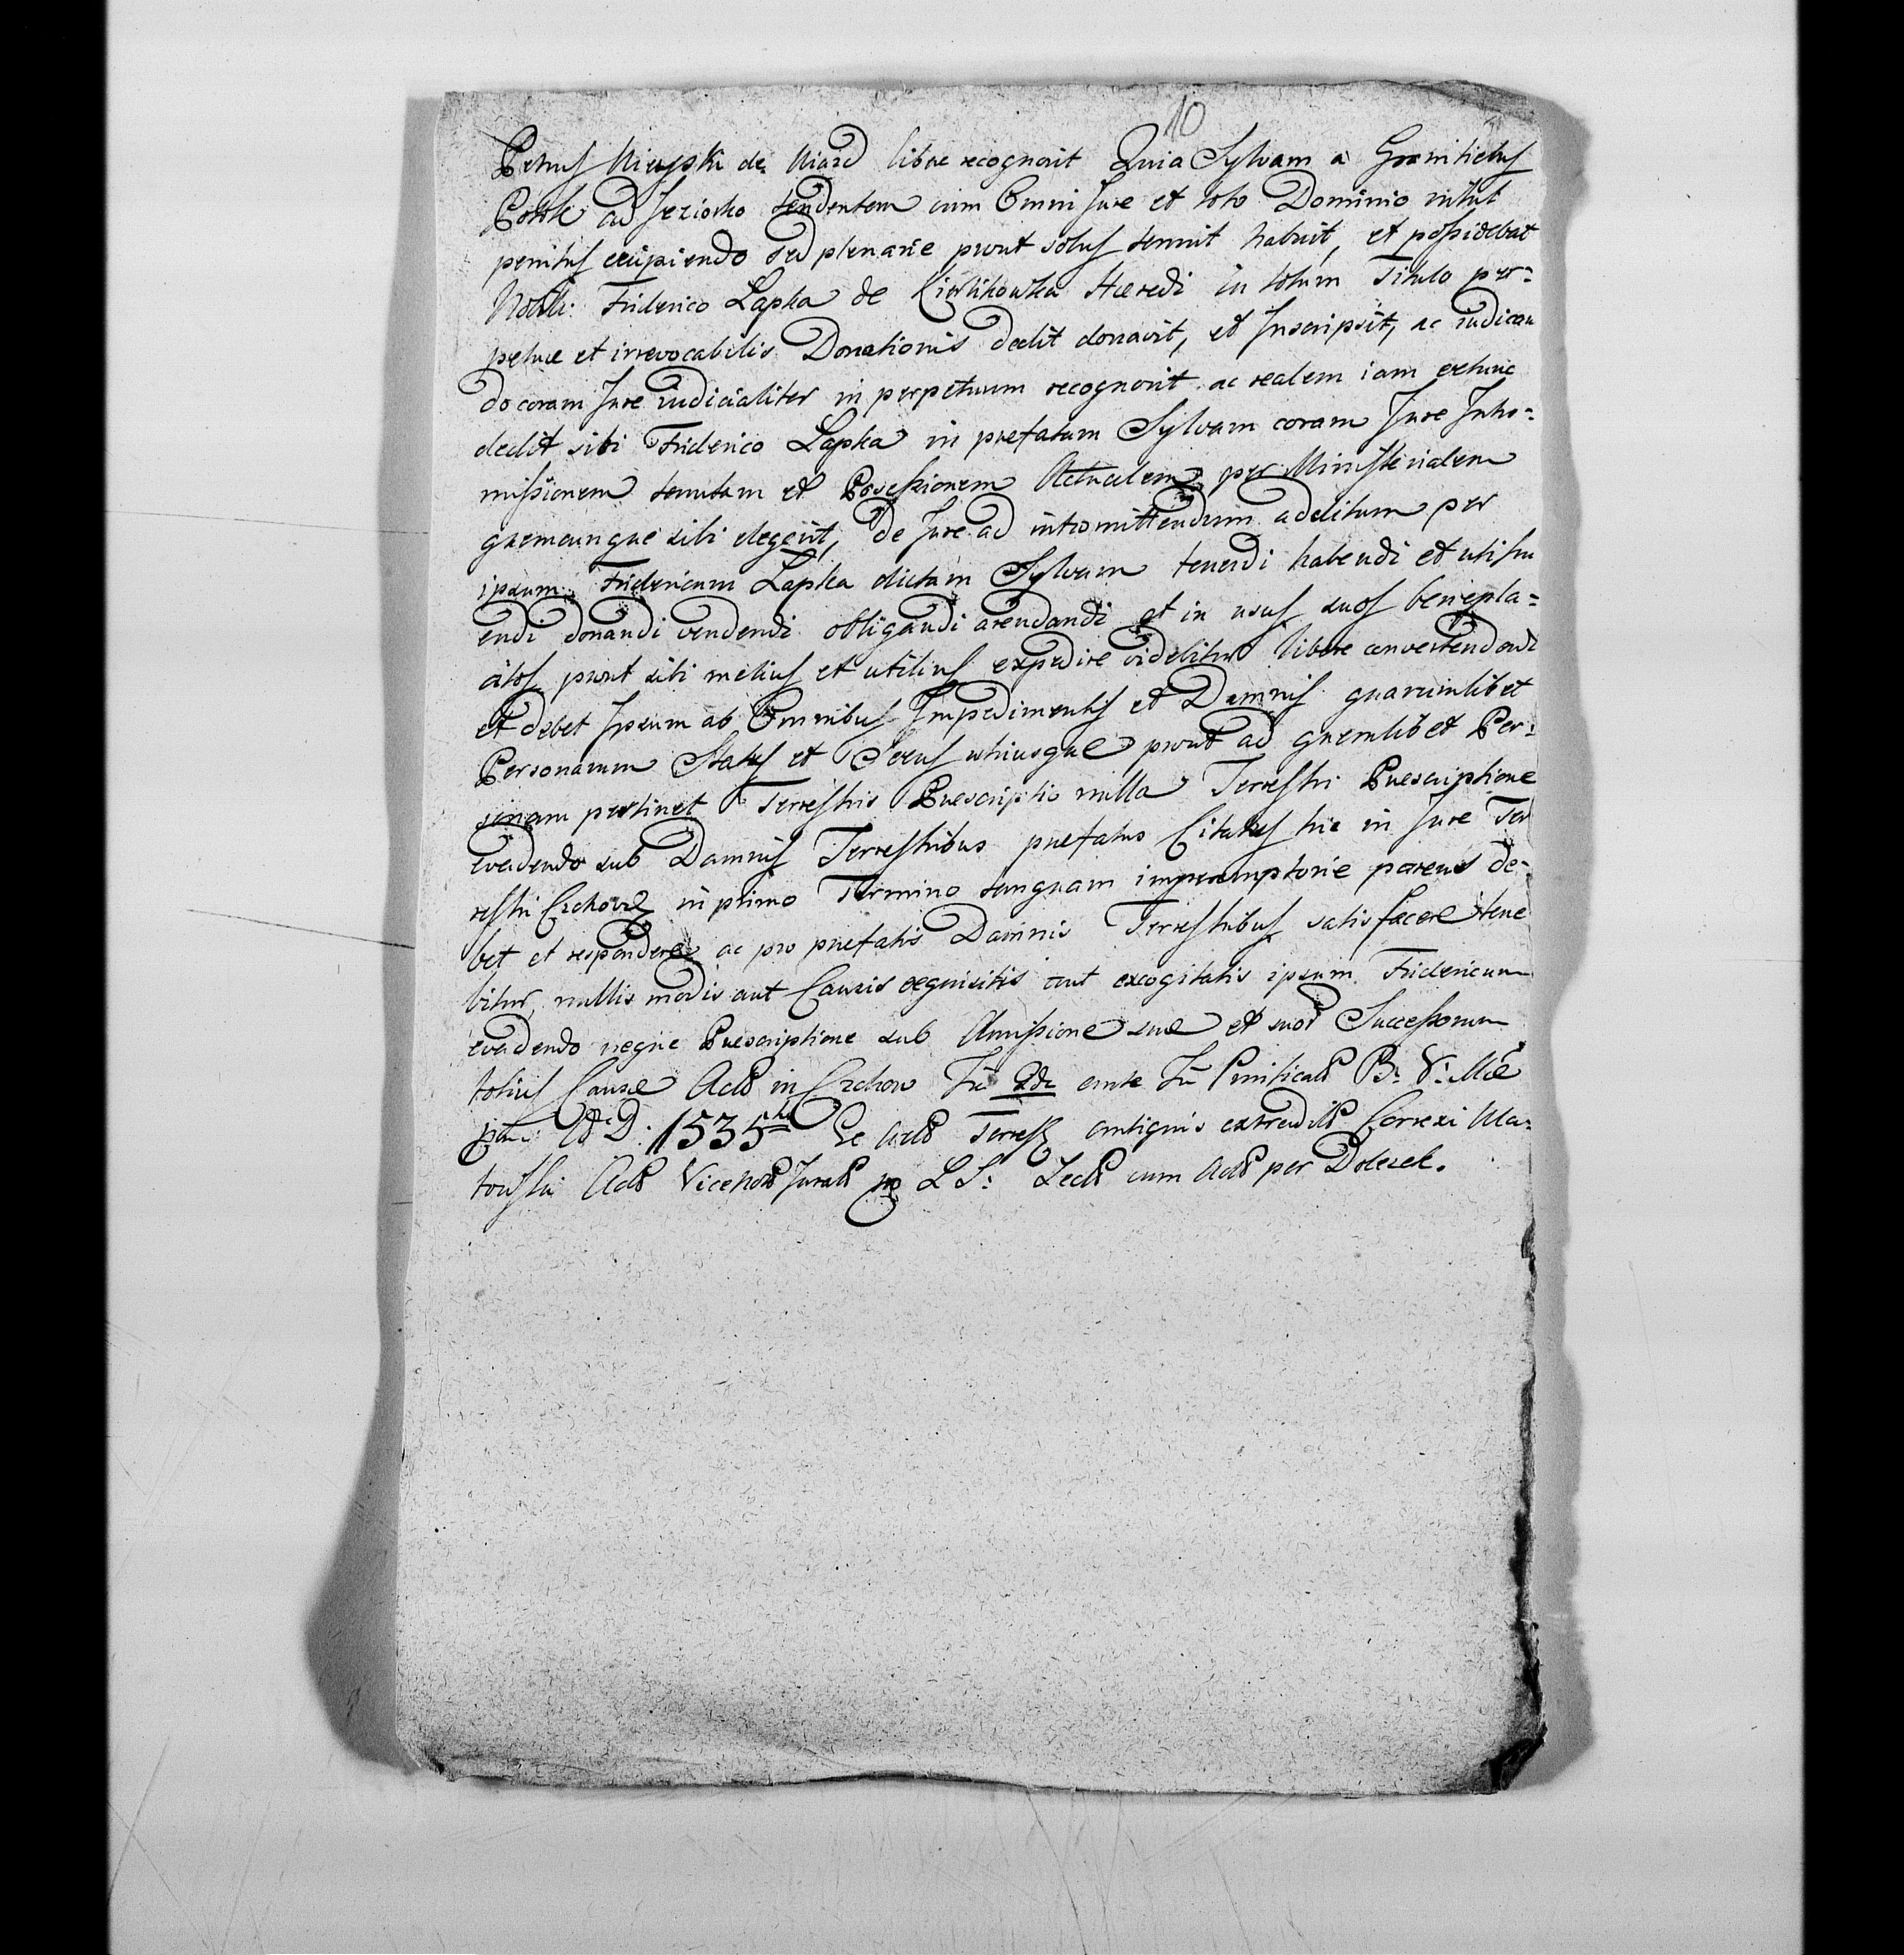 10
Petrus Niryski de Niard libere recognovit Quia Sylvam a Granitiebus
Potok ad Jeziorko tendentem cum Omni Jure et toto Dominio nihil
penitus excipiendo sed plenarie prout solus tenuit habuit, et possidebat
Nobili Friderico Lapka de Heredi in totum Titulo per=
petuae et irrevocabilis Donationis dedit donavit, et Inscripsit, ac iudican
do coram Jure iudicialiter in perpetuum recognovit ac realem iam exhunc
dedit sibi Friderico Lapka in prefatam Sylvam coram Jure Intro=
missionem tenutam et Possessionem Actualem per Ministerialem
quemcunque sibi elegerit, de Jure ad intromittendum additum per
ipsum Fridericum Lapka dictam Sylvam tenendi habendi et utifru
endi donandi vendendi obligandi arendandi et in usus suos benepla=
citos prout sibi melius et utilius expedire videbitur libere convertendendi
et debet Ipsum ab Omnibus Impedimentis et Damnis quarumlibet
Personarum Status et Sexus utriusque prout ad quemlibet Per=
sonam pertinet Terrestris Prescriptio nulla Terrestri Prescriptione
evadendo sub Damnis Terrestribus prefatus Citatus hic in Jure Ter
restri in primo Termino tanquam peremptorie parens de=
bet et respondere ac pro prefatis Damnis Terrestribus satisfacere tene
bitur, nullis modis aut Causis exquisitis aut excogitatis ipsum Fridericum
evadendo neque Prescriptione sub Amissione sue et suor Successorum
totius Causae Act in Czchow Fr 2da ante F Purificat B: V: Mae
A: D: 1535to Ex Actis Terrest antiquis extradit Correxi Ma=
towski Act Vice Jurat mp L S: Lect cum Act per Dolezel.